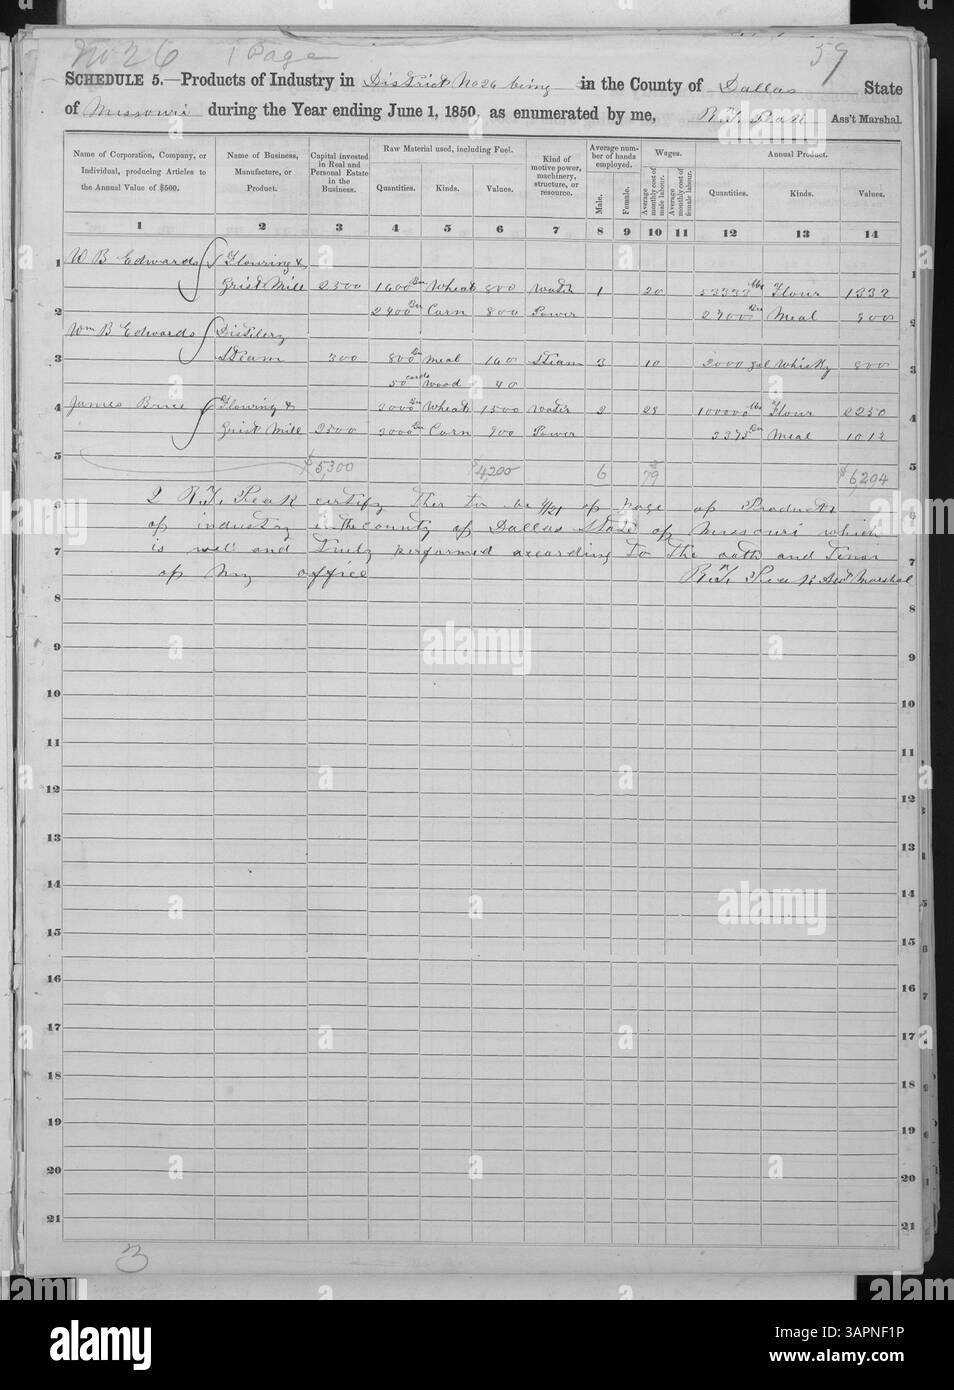 No 26 1 Page 59
SCHEDULE 5.—Products of Industry in District No 26 being in the County of Dallas State
of Missouri during the Year ending June 1, 1850, as enumerated by me, Ass't Marshal.
Name of Corporation, Company, or Individual, producing Articles to the Annual Value of $500.
Name of Business, Manufacture, or Product.
Capital invested in Real and Personal Estate in the Business.
Raw Material used, including Fuel.
Quantities. Kinds. Values.
Kind of motive power, machinery, structure, or resource.
Average number of hands employed.
Male. Female.
Wages.
Average monthly cost of male labour.
Average monthly cost of female labour.
Annual Product.
Quantities. Kinds. Values.
1 2 3 4 5 6 7 8 9 10 11 12 13 14
W B Edwards Flouring &
1 1
Grist Mill 2500 1600 Bu Wheat 800 Water 1 20 53333 lbs Flour 1332
2 2400 Bu Corn 800 Power 2700 Bu Meal 900 2
Wm B Edwards Distilery
3 Steam 300 800 Bu Meal 160 Steam 3 10 2000 gal Whisky 800 3
50 cords Wood 40
4 James Flowing & 3000 Bu Wheat 1500 Water 2 100000 lbs Flour 2250 4
Grist Mill 2500 3000 Bu Corn 900 Power 3375 Bu Meal 1012
5 $5,300 $4,200 6 79 $6,294 5
6 certify this to be of page of Products 6
of industry in the County of Dallas State of Missouri which
7 is well and truly performed according to the oath and Tenor 7
of my office Asst Marshal
8 8
9 9
10 10
11 11
12 12
13 13
14 14
15 15
16 16
17 17
18 18
19 19
20 20
21 21
3
alamy
Image ID: 3APNF1P
www.alamy.com